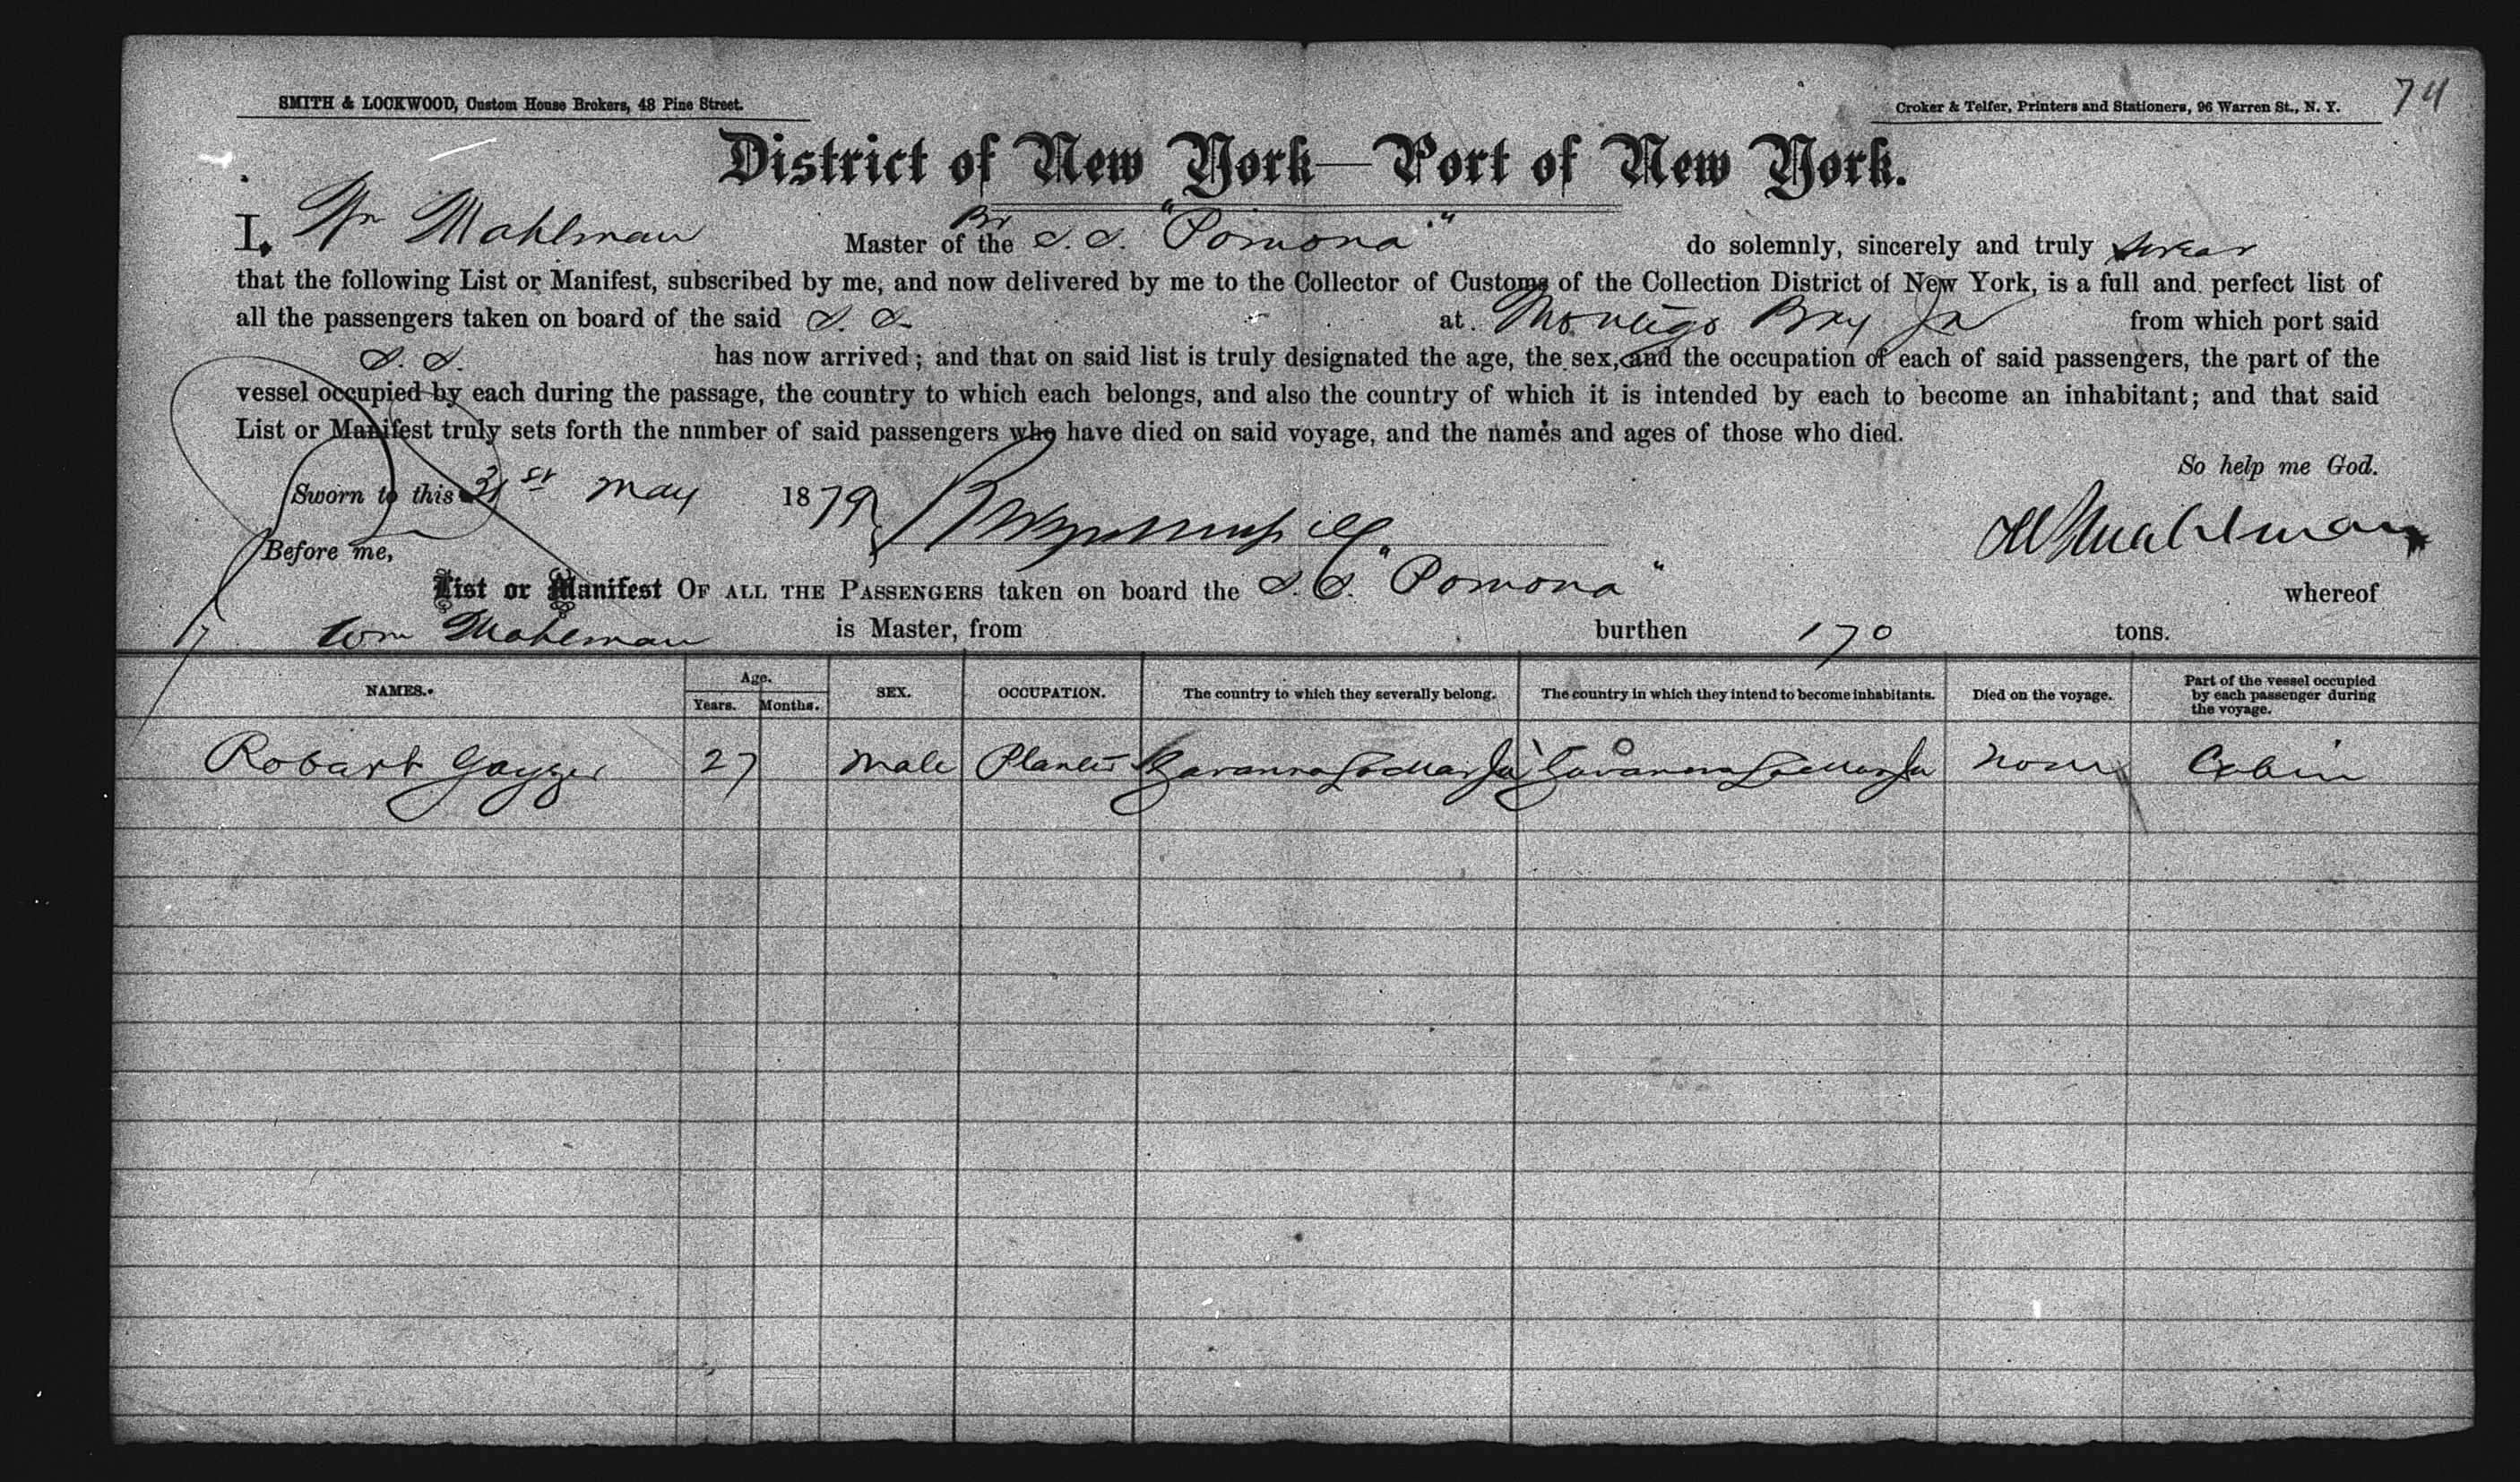 74
SMITH & LOCKWOOD, Custom House Brokers, 48 Pine Street.
Croker & Telfer, Printers and Stationers, 96 Warren St., N. Y.
District of New York—Port of New York.
I, Wm Mahlman Master of the Br S. S. "Pomona" do solemnly, sincerely and truly swear
that the following List or Manifest, subscribed by me, and now delivered by me to the Collector of Customs of the Collection District of New York, is a full and perfect list of
all the passengers taken on board of the said S. S. at Montego Bay Ja from which port said
S. S. has now arrived; and that on said list is truly designated the age, the sex, and the occupation of each of said passengers, the part of the
vessel occupied by each during the passage, the country to which each belongs, and also the country of which it is intended by each to become an inhabitant; and that said
List or Manifest truly sets forth the number of said passengers who have died on said voyage, and the names and ages of those who died.
So help me God.
Sworn to this 31st May 1879
W Mahlman
Before me,
List or Manifest OF ALL THE PASSENGERS taken on board the S. S. "Pomona" whereof
Wm Mahlman is Master, from burthen 170 tons.
NAMES. Age. Years. Months. SEX. OCCUPATION. The country to which they severally belong. The country in which they intend to become inhabitants. Died on the voyage. Part of the vessel occupied by each passenger during the voyage.
Robart 27 Male Planter Savanna La Mar Ja Savanna La Mar Ja None Cabin